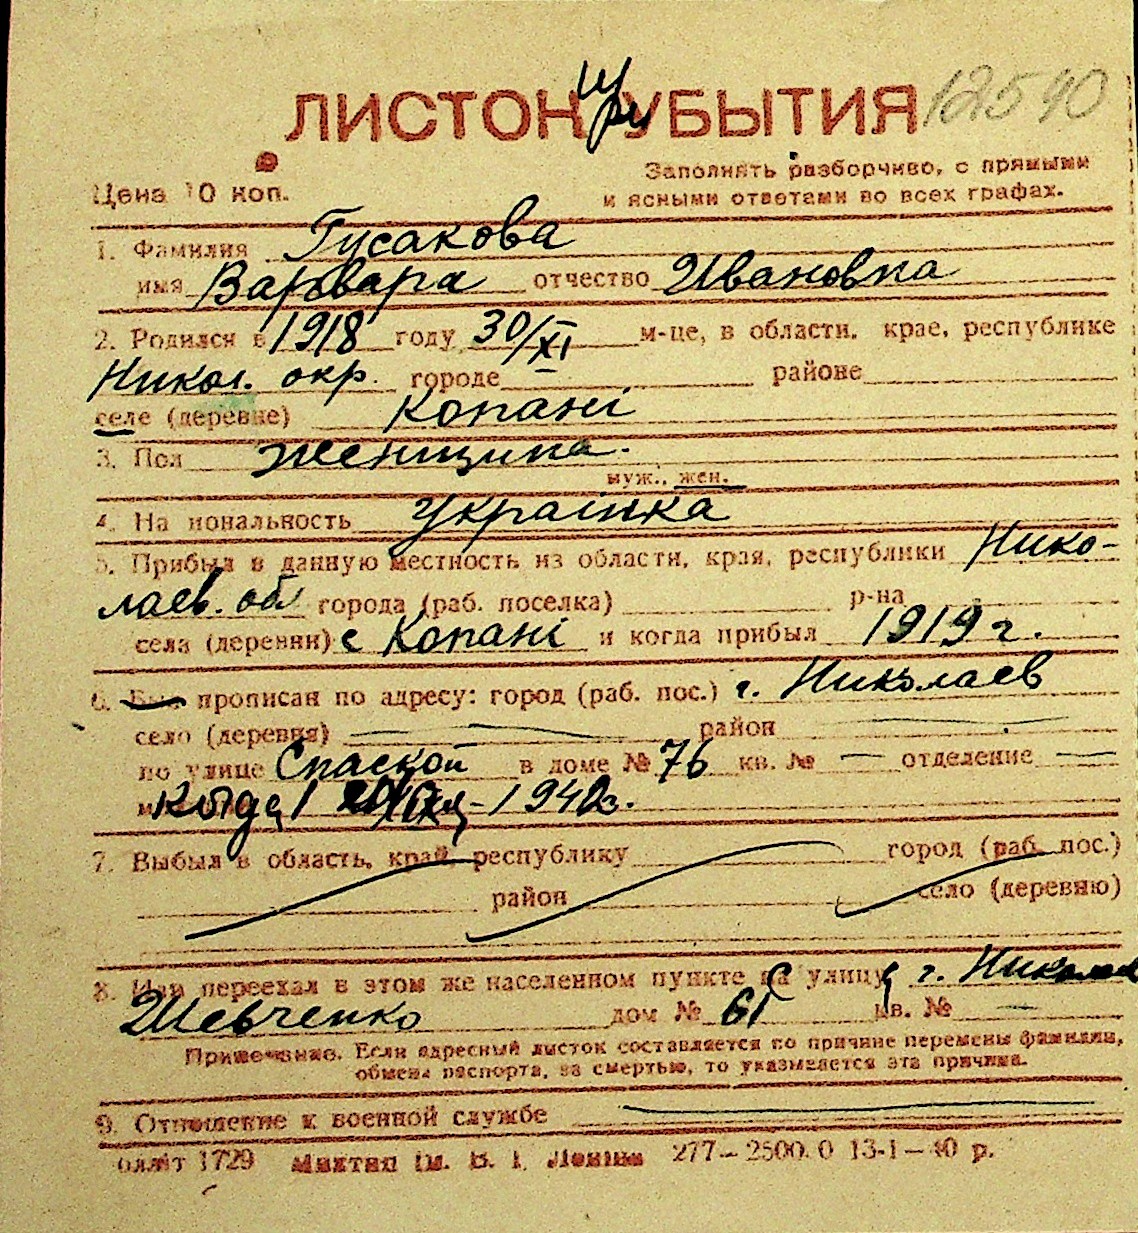 ЛИСТОК УБЫТИЯ при 12540
Цена 10 коп.
Заполнять разборчиво, с прямыми
и ясными ответами во всех графах.
1. Фамилия Гусакова
имя Варвара отчество Ивановна
2. Родился в 1918 году 30/XI м-це, в области, крае, республике
Никол. окр. городе районе
селе (деревне) Копані
3. Пол женщина.
муж., жен.
4. Национальность Українка
5. Прибыл в данную местность из области, края, республики Нико-
лаев. обл города (раб. поселка) р-на
села (деревни) с Копані и когда прибыл 1919 г.
6. Был прописан по адресу: город (раб. пос.) г. Николаев
село (деревня) — район —
по улице Спаской в доме № 76 кв. № — отделение —
когда 1942г.
7. Выбыл в область, край, республику город (раб. пос.)
район село (деревню)
8. Или переехал в этом же населенном пункте с улицы г. Николаев
Шевченко дом № 61 кв. № —
Примечание. Если адресный листок составляется по причине перемены фамилии,
обмена паспорта, за смертью, то указывается эта причина.
9. Отношение к военной службе —
1729 ім. В. І. Леніна 277—2500. 0 13-1—40 р.